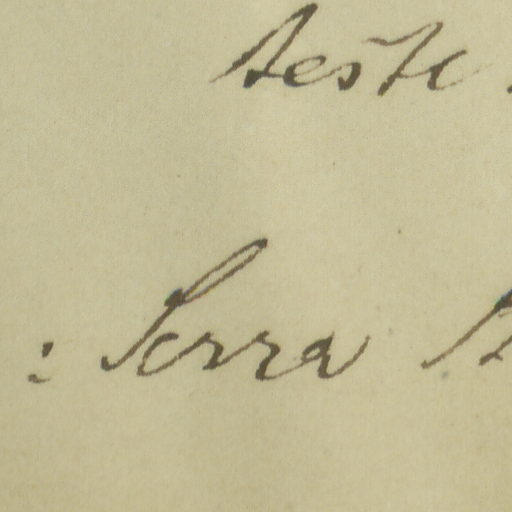 teste
: Serra